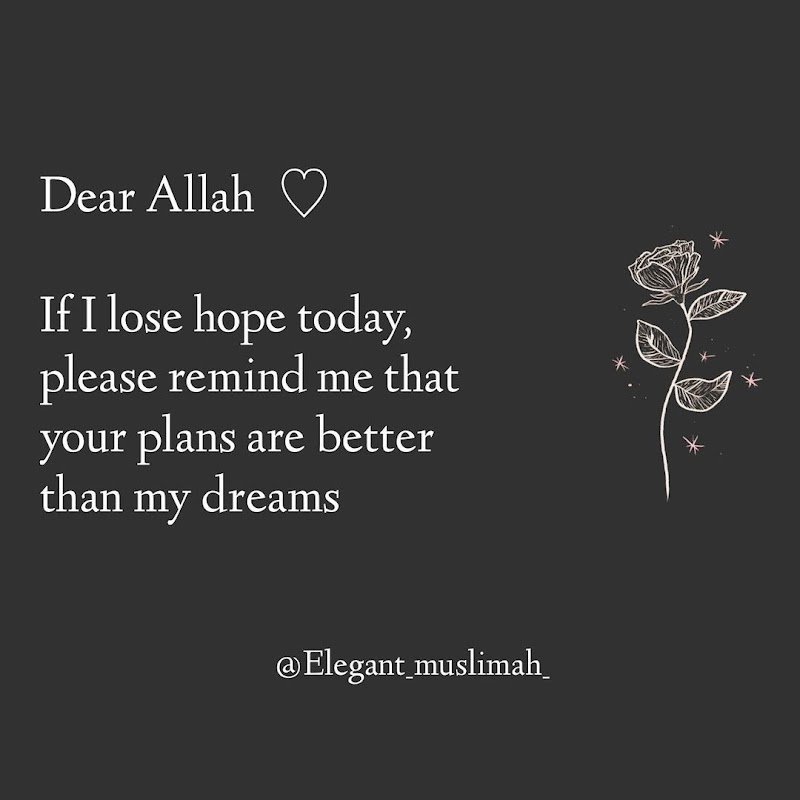 Dear Allah ♡
If I lose hope today,
please remind me that
your plans are better
than my dreams
@Elegant_muslimah_